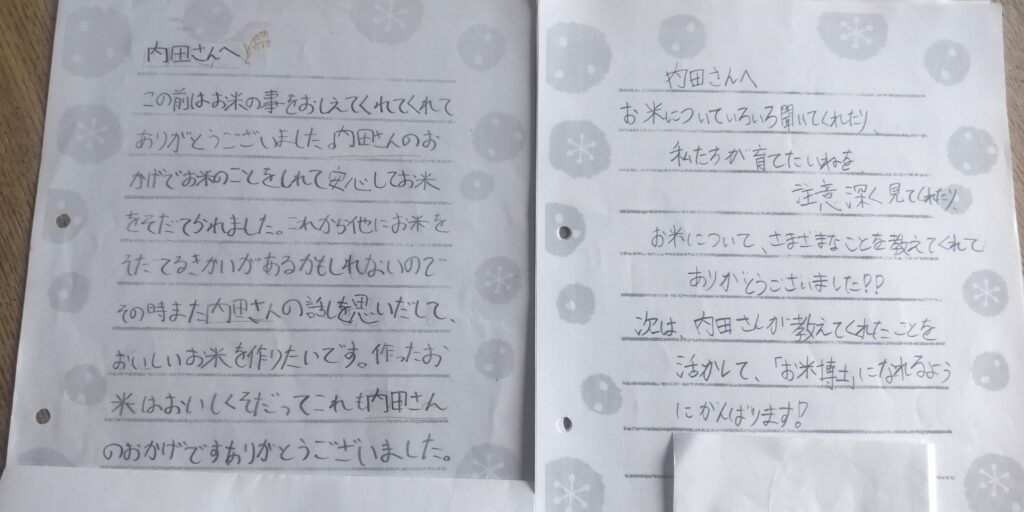 内田さんへ
この前はお米の事をおしえてくれてくれて
ありがとうございました。内田さんのお
かげでお米のことをしれて安心してお米
をそだてられました。これから他にお米を
そだてるきかいがあるかもしれないので
その時また内田さんの話しを思いだして、
おいしいお米を作りたいです。作ったお
米はおいしくそだってこれも内田さん
のおかげですありがとうございました。
内田さんへ
お米についていろいろ聞いてくれたり、
私たちが育てたいねを、
注意深く見てくれたり、
お米について、さまざまなことを教えてくれて
ありがとうございました??
次は、内田さんが教えてくれたことを
活かして、「お米博士」になれるよう
にがんばります!